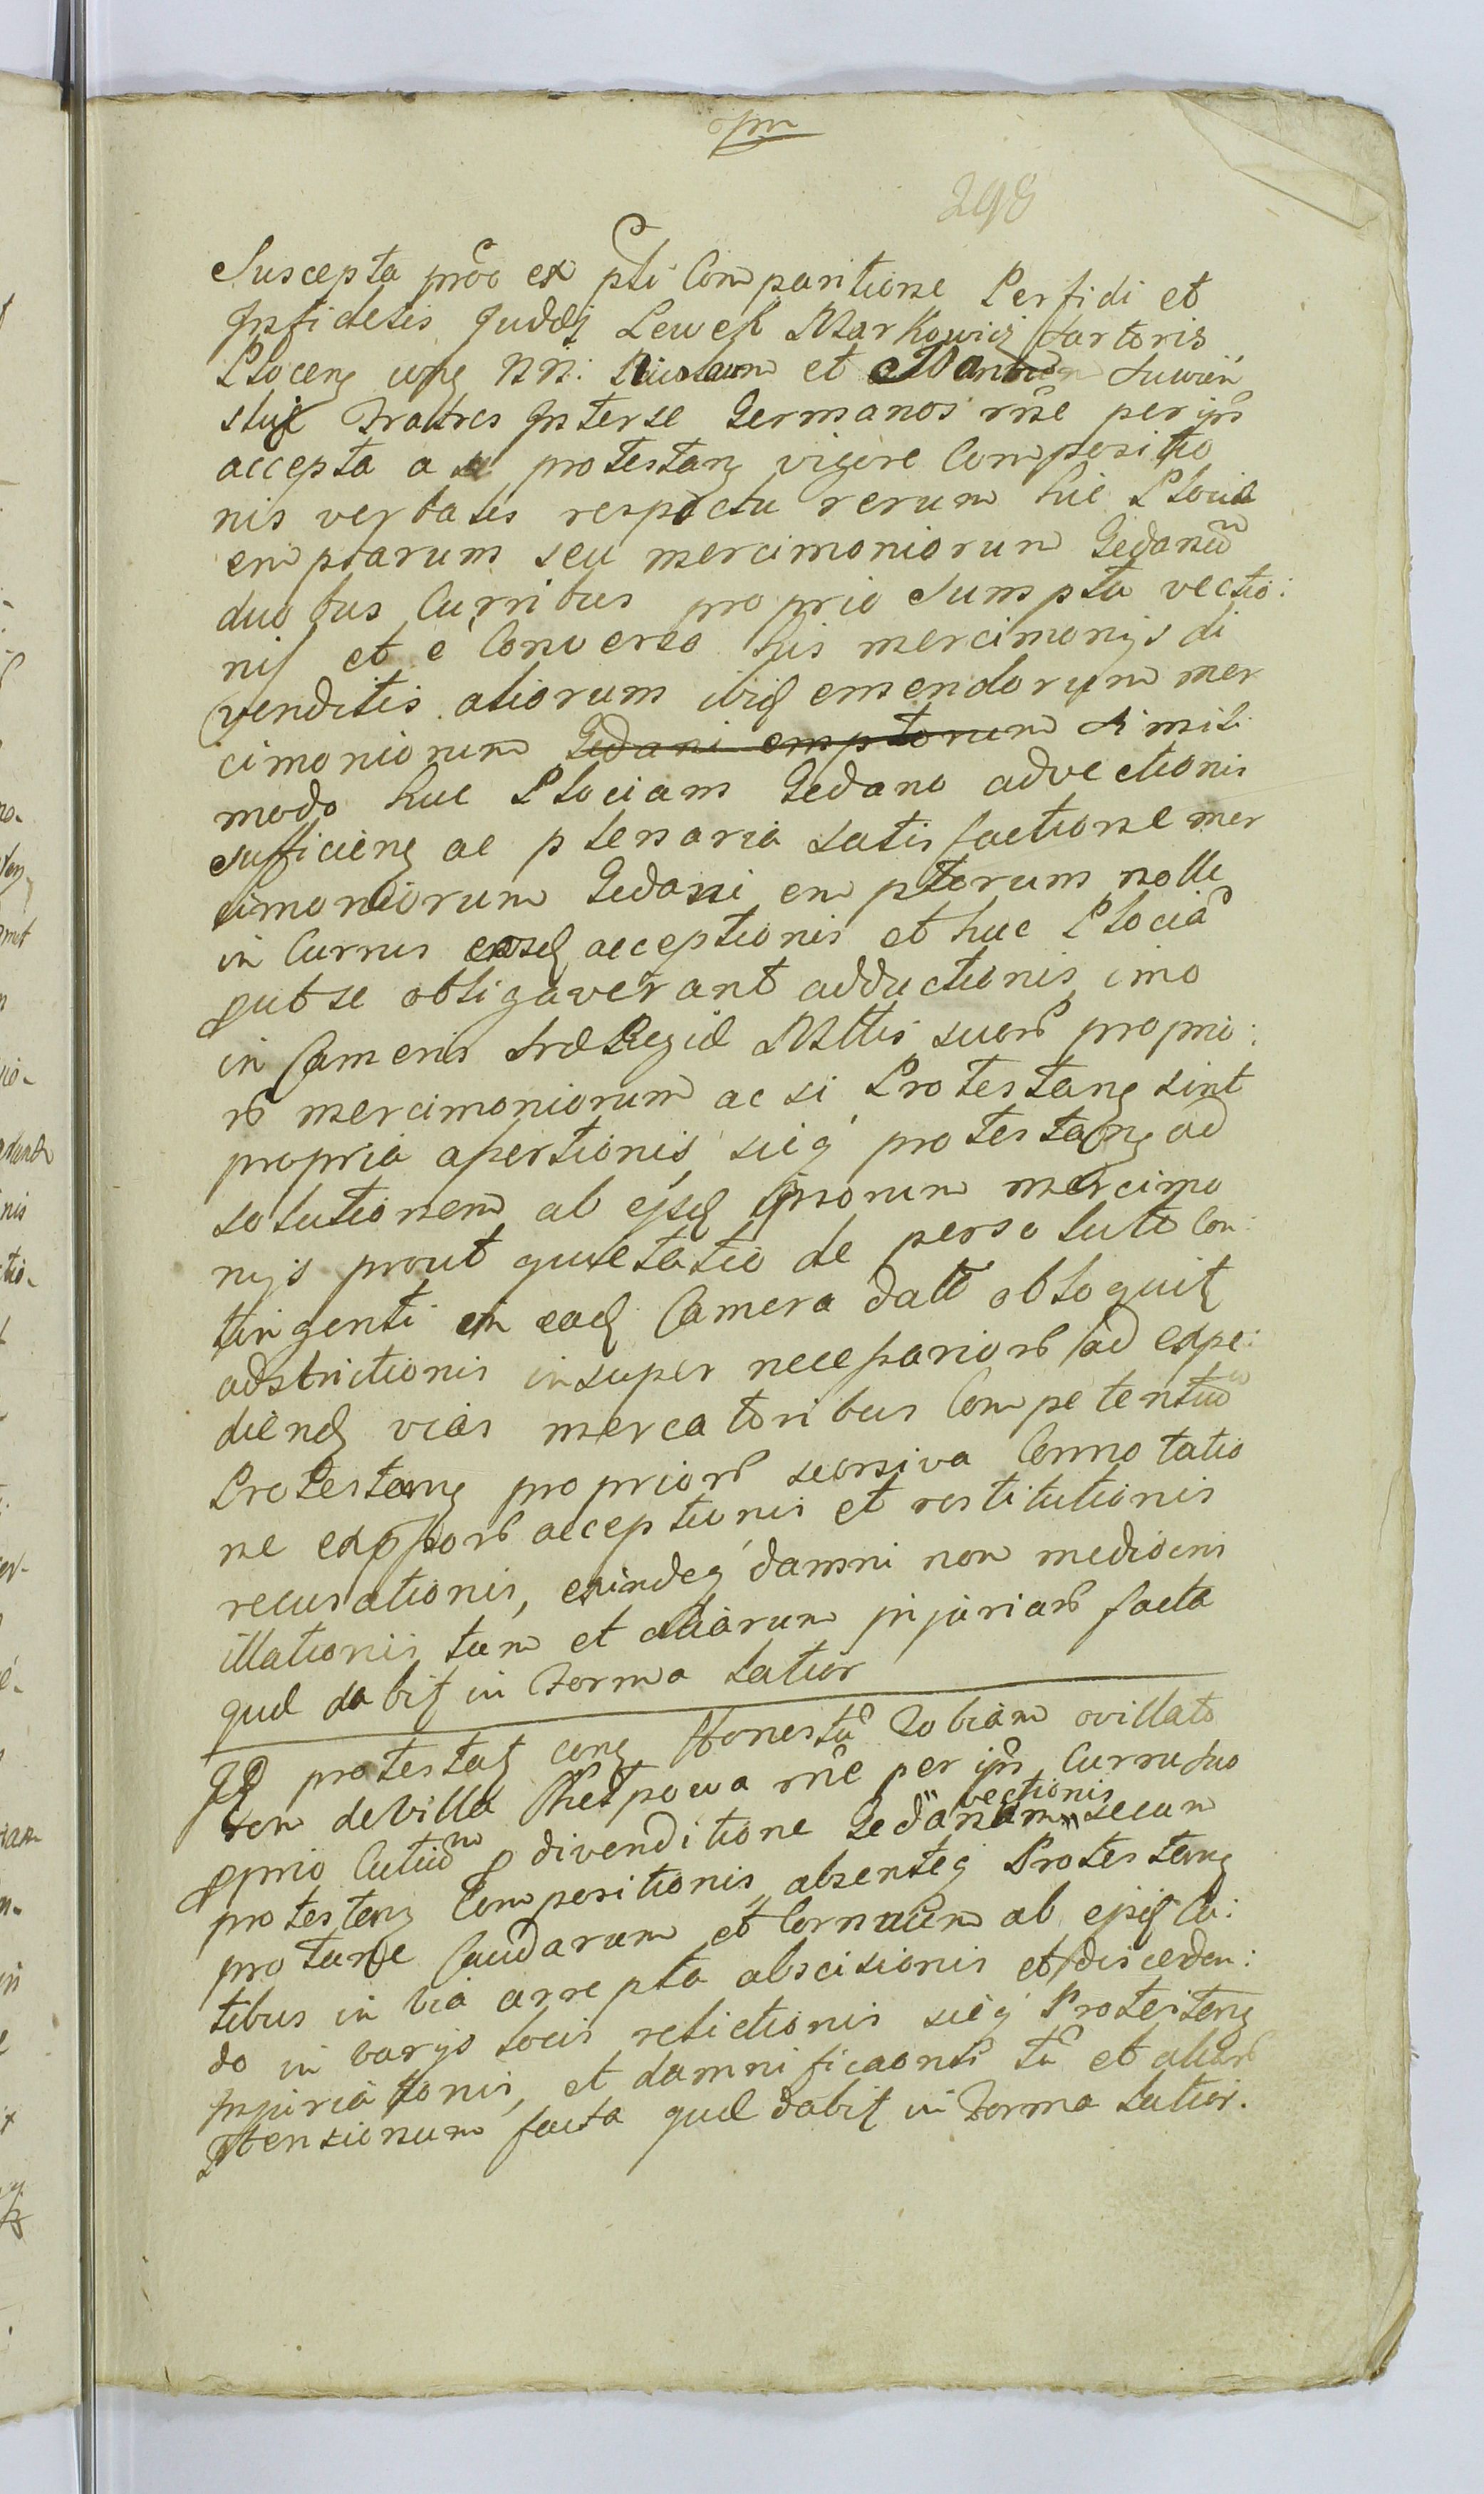 298
Suscepta prõo ex pti Comparitione Perfidi et
Infidelis Judęi Lewek Markowicz Sartoris
Plocen contra NN: et Suwin
skie Fratres Interse Germanos rñe per ips
accepta a se protestan vigore Compositio
nis verbalis respectu rerum hic Plociæ
emptarum seu mercimoniorum Gedanũ
duobus Curribus proprio Sumptu vectio:
nis et è Converso his mercimonijs di
venditis aliorum ibiq emendorum mer
cimoniorum Gedani emptorum simili
modo huc Plociam Gedano advectionis
sufficien ac plenaria satisfactione mer
cimoniorum Gedani emptorum nolle
in Currus eosq acceptionis et huc Plociã
put se obligaverant adductionis imo
in Cameris Sræ Regiæ Mttis suor proprio:
r mercimoniorum ac si Protestan sint
propria apertionis sicq protestan ad
solutionem ab ejsd ipsorum mercimo
nijs prout quietatio de persoluto Con:
tingenti in ead Camera dato obloquit
adstrictionis insuper necessarior ad expe:
diend vias mercatoribus Competentiũ
Protestan proprior seorsiva Connotatio
ne expossor acceptionis et restitutionis
recusationis, exindeq damni non mediocris
illationis tum et aliarum injuriar facta
quæ dabit in Forma latior
Id protestat con Honestũ Tobiam ovillato
rem de Villa rñe per ips Curru suo
pprio Cutiũ p divenditione Gedanum vectionis secum
protestan Compositionis absenteq Protestan
protunc Caudarum et Cornuum ab ejsd Cu:
tibus in via arrepta abscisionis et disceden:
do in varijs locis relictionis sicq Protestan
Injuriationis, et damnificaonis tũ et aliar
ptensionum facta quæ dabit in Forma latior.